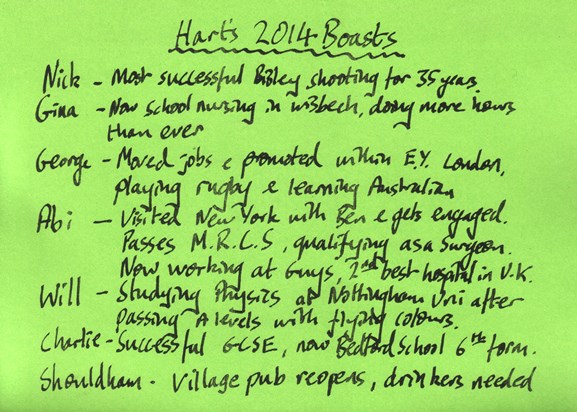 Hart's 2014 Boasts
Nick - Most successful Bisley shooting for 35 years.
Gina - Now school nursing in Wisbech, doing more hours
than ever
George - Moved jobs & promoted within E.Y. London,
playing rugby & learning Australian
Abi - Visited New York with Ben & gets engaged.
Passes M.R.C.S, qualifying as a Surgeon.
Now working at Guys, 2nd best hospital in U.K.
Will - Studying Physics at Nottingham Uni after
passing A levels with flying colours.
Charlie - Successful GCSE, now Bedford School 6th form.
Shouldham - Village pub reopens, drinkers needed